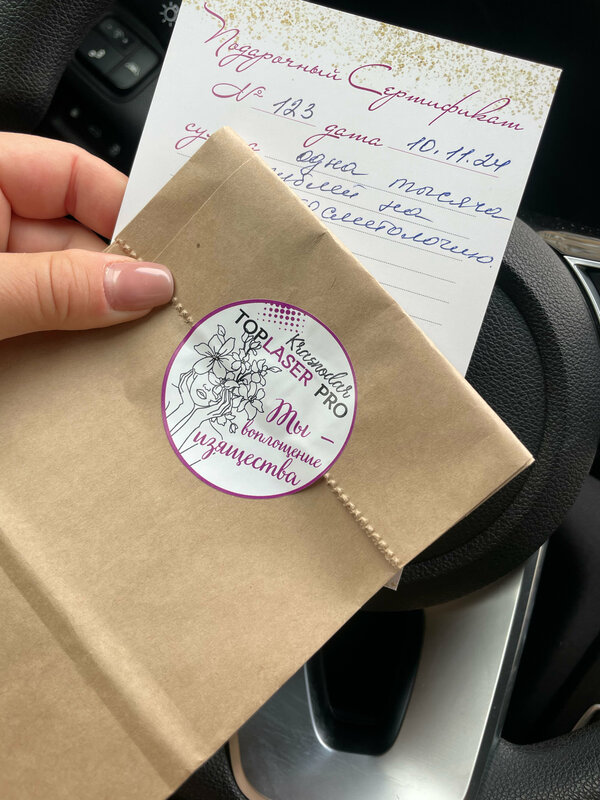 Подарочный Сертификат
№ 123 дата 10.11.24
одна тысяча
рублей на
косметологию.
Krasnodar
TOPLASER PRO
Ты –
воплощение
изящества